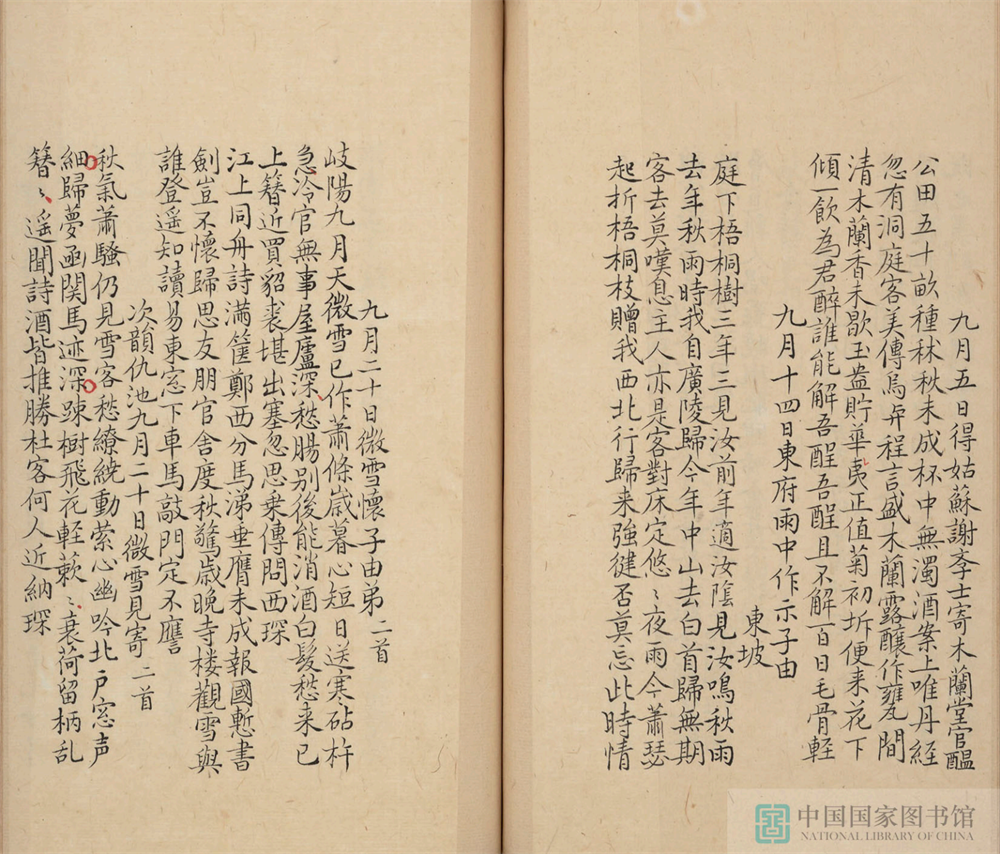 九月五日得姑蘇謝李士寄木蘭堂官醖
公田五十畝種秫秋未成杯中無濁酒案上唯丹經
忽有洞庭客美傳烏弁程言盛木蘭露釀作甕間
清木蘭香未歇玉盎貯華夷正值菊初坼便来花下
傾一飲為君醉誰能解吾醒吾醒且不解百日毛骨輕
九月十四日東府雨中作示子由
東坡
庭下梧桐樹三年三見汝前年適汝陰見汝鳴秋雨
去年秋雨時我自廣陵歸今年中山去白首歸無期
客去莫嘆息主人亦是客對床定悠〻夜雨今蕭瑟
起折梧桐枝贈我西北行歸来強徤否莫忘此時情
九月二十日微雪懷子由弟二首
岐陽九月天微雪已作蕭條歲暮心短日送寒砧杵
急冷官無事屋廬深愁腸别後能消酒白髮愁来已
上簪近買貂裘堪出塞忽思乗傳問西琛
江上同舟詩满篋鄭西分馬涕垂膺未成報國慙書
劍豈不懷歸思友朋官舎度秋驚歲晚寺楼觀雪與
誰登遥知讀易東窓下車馬敲門定不譍
次韻仇池九月二十日微雪見寄二首
秋氣蕭騷仍見雪客愁繚繞動縈心幽吟北戸窓声
細歸夢函関馬迹深踈樹飛花軽蔌〻衰荷留柄乱
簪〻遥聞詩酒皆推勝杜客何人近納琛
中国国家图书馆
NATIONAL LIBRARY OF CHINA